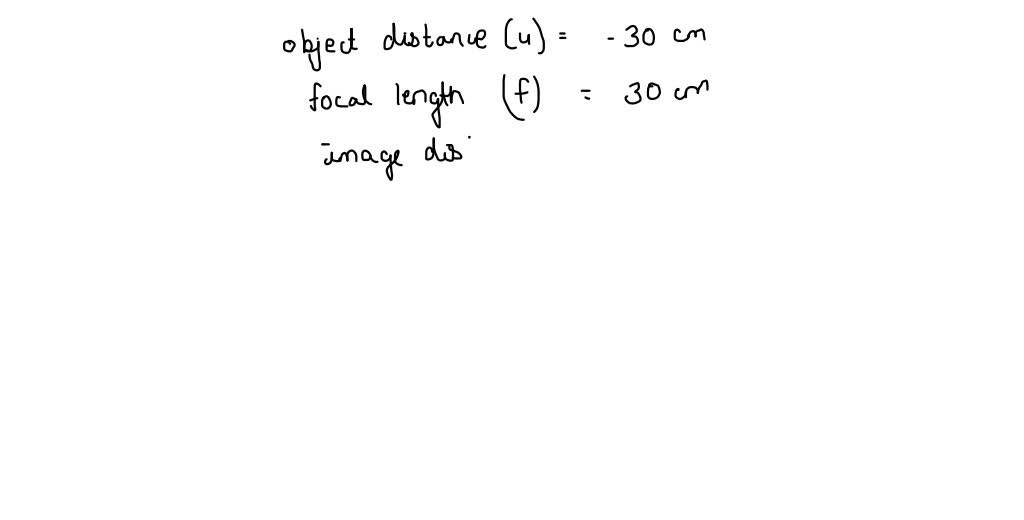 object distance (u) = - 30 cm
focal length (f) = 30 cm
image dis